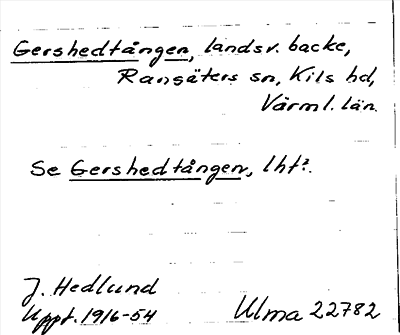 Gershedtången, landsv. backe,
Ransäters sn, Kils hd,
Värml. län.
Se Gershedtången, lht?.
J. Hedlund
Uppt. 1916-54
Ulma 22782